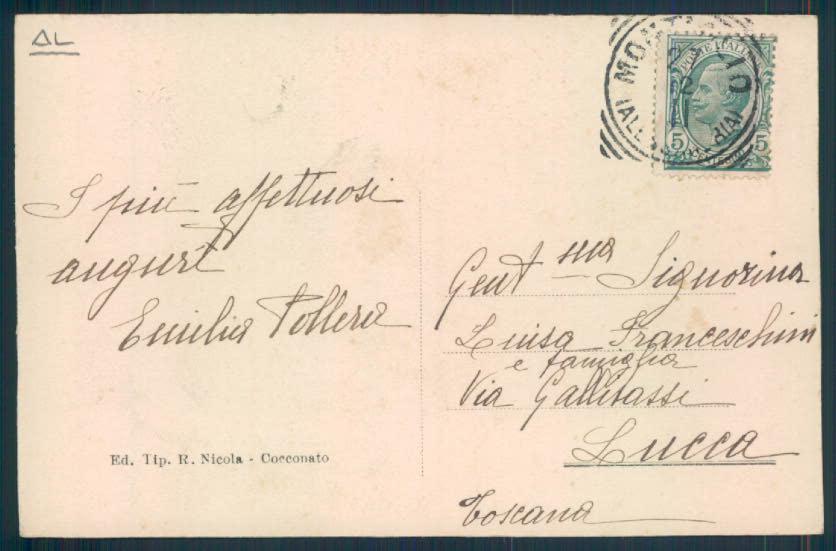 AL
I più affettuosi
auguri
Emilia Pollera
Ed. Tip. R. Nicola - Cocconato
POSTE ITALIANE
5 5
Gent sma Signorina
Luisa Franceschini
e famiglia
Via Gallitassi
Lucca
Toscana